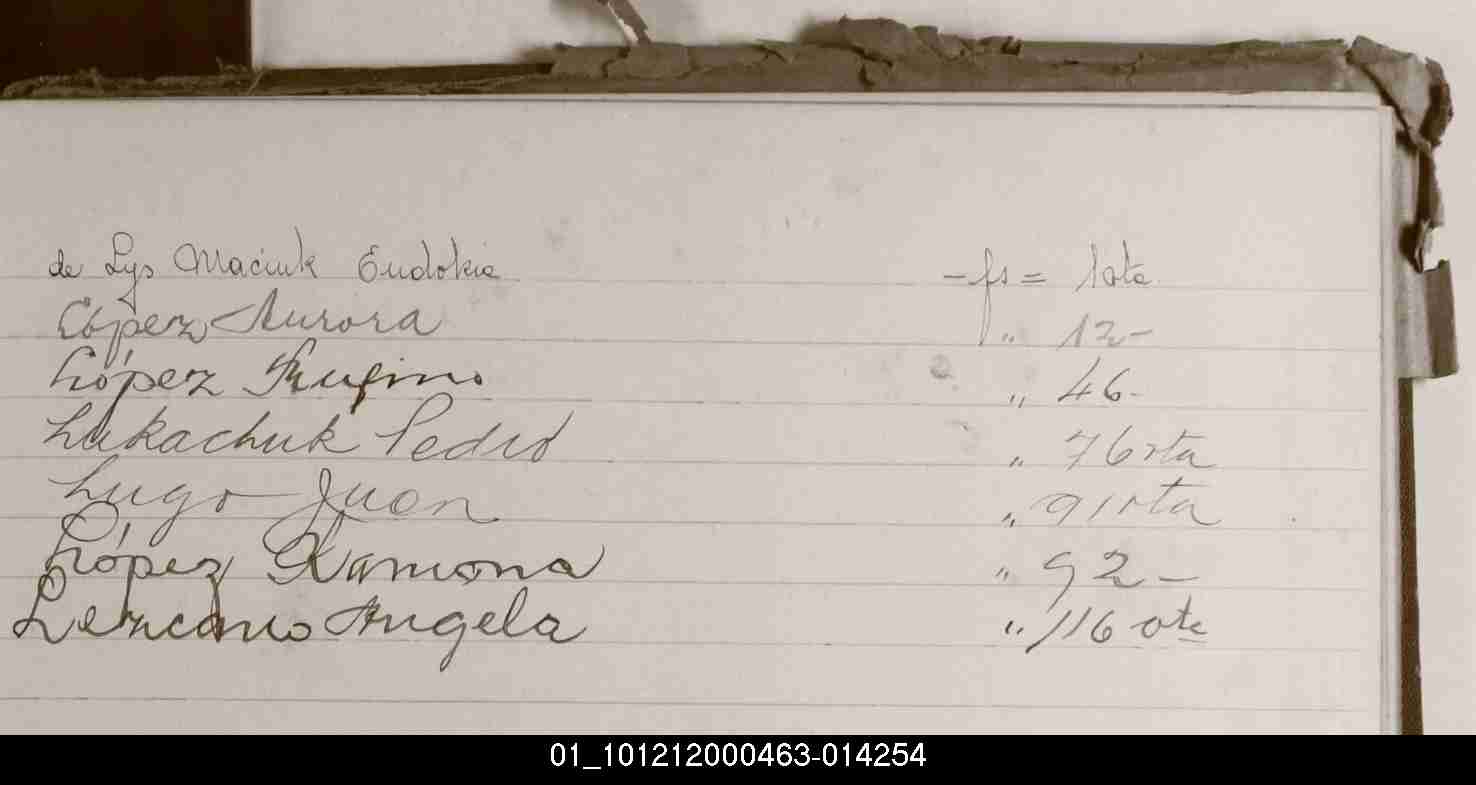 de Lys Maciuk Eudokia - fs = 1 ote
López Aurora " 12-
López Rufino " 46-
Lukachuk Pedro " 76 rta
Lugo Juan " 91 rta
López Ramona " 92 -
Lezcano Angela " 116 ote
01_101212000463-014254